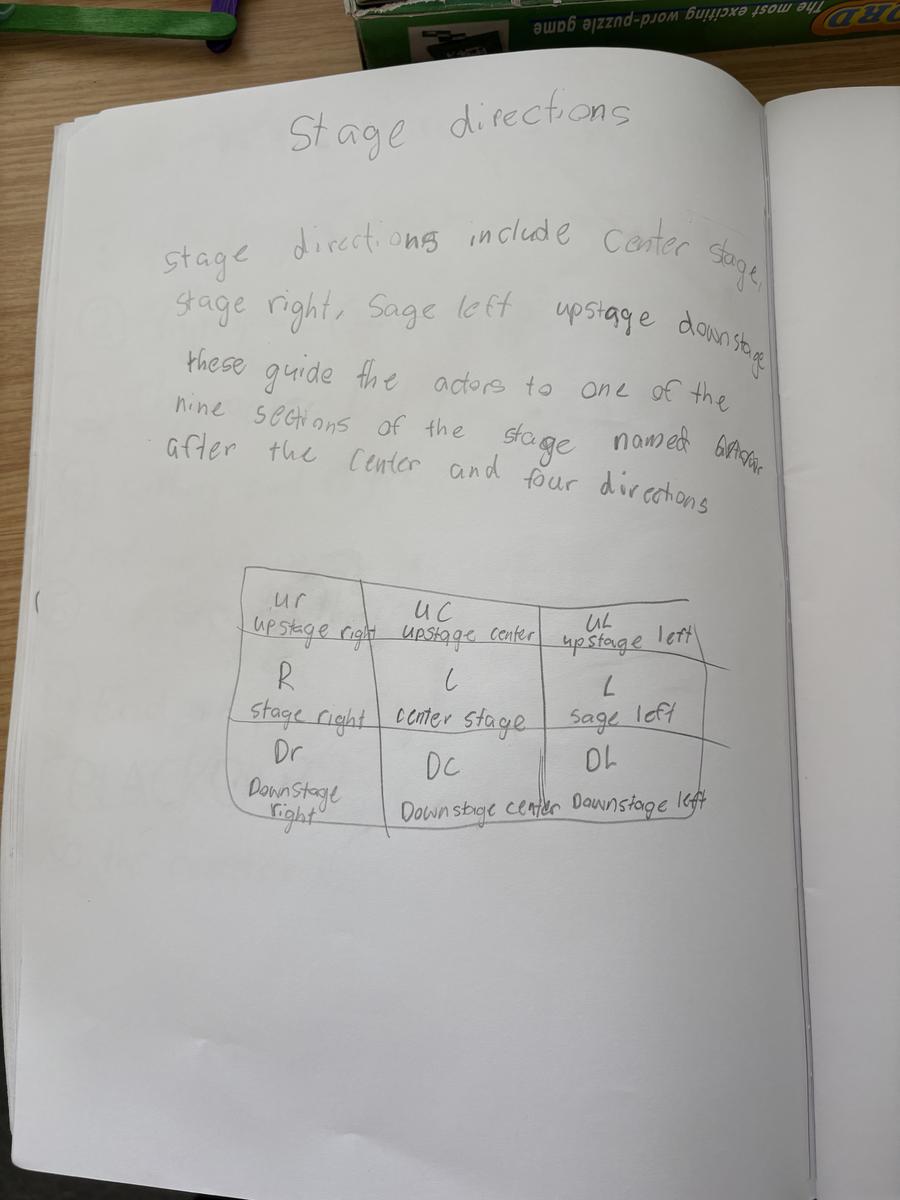 The most exciting word-puzzle game
ORD
Stage directions
stage directions include Center stage,
stage right, Sage left upstage downstage
these guide the actors to one of the
nine sections of the stage named
after the center and four directions
ur
upstage right
UC
upstage center
UL
upstage left
R
stage right
C
center stage
L
sage left
Dr
Downstage
right
DC
Downstage center
DL
Downstage left